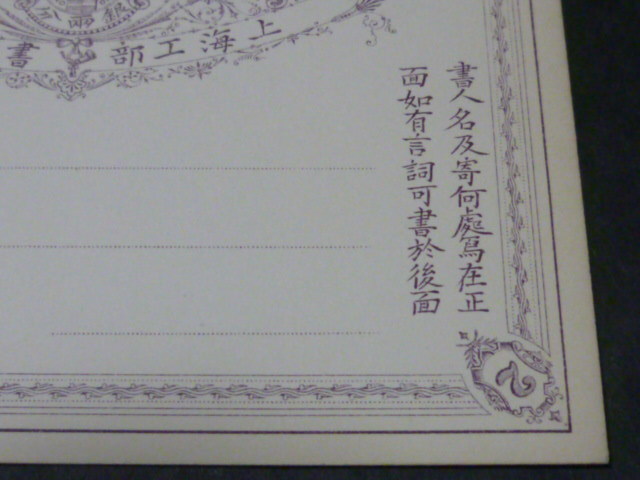 分兩銀
上海工部書
書人名及寄何處寫在正
面如有言詞可書於後面